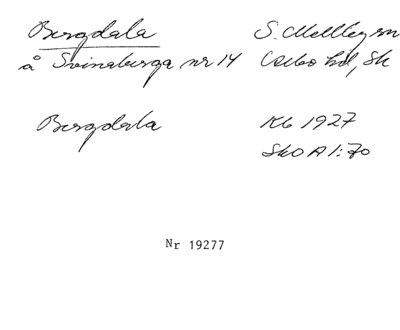 Bergdala S. Mellby sn
å Svinaberga nr 14 Albo hd, Sk
Bergdala Kb 1927
SkO A 1:70
Nr 19277